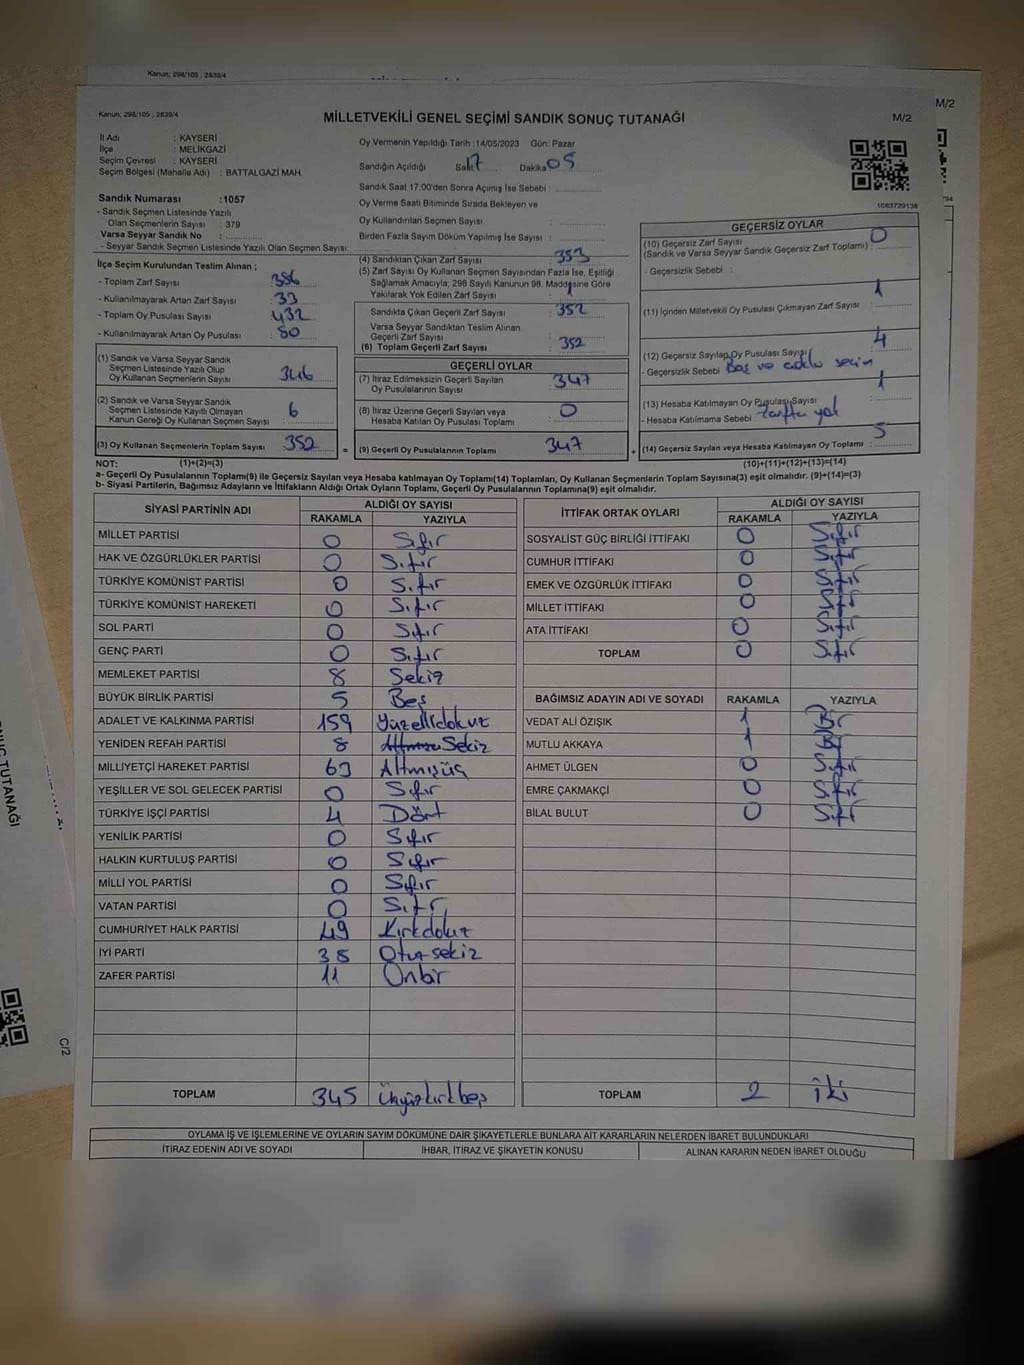 Kanun, 298/105 , 2839/4
M/2
Kanun, 298/105 , 2839/4
MİLLETVEKİLİ GENEL SEÇİMİ SANDIK SONUÇ TUTANAĞI
M/2
İl Adı : KAYSERİ
İlçe : MELİKGAZİ
Seçim Çevresi : KAYSERİ
Seçim Bölgesi (Mahalle Adı) : BATTALGAZİ MAH.
Sandık Numarası :1057
- Sandık Seçmen Listesinde Yazılı
Olan Seçmenlerin Sayısı : 379
Varsa Seyyar Sandık No :
- Seyyar Sandık Seçmen Listesinde Yazılı Olan Seçmen Sayısı:
Oy Vermenin Yapıldığı Tarih :14/05/2023 Gün: Pazar
Sandığın Açıldığı Saat 17 Dakika 05
Sandık Saat 17:00'den Sonra Açımış İse Sebebi :
Oy Verme Saati Bitiminde Sırada Bekleyen ve
Oy Kullandırılan Seçmen Sayısı :
Birden Fazla Sayım Döküm Yapılmış İse Sayısı :
1083729138
İlçe Seçim Kurulundan Teslim Alınan ;
- Toplam Zarf Sayısı 386
- Kullanılmayarak Artan Zarf Sayısı : 33
- Toplam Oy Pusulası Sayısı : 432
- Kullanılmayarak Artan Oy Pusulası : 80
(1) Sandık ve Varsa Seyyar Sandık
Seçmen Listesinde Yazılı Olup
Oy Kullanan Seçmenlerin Sayısı 346
(2) Sandık ve Varsa Seyyar Sandık
Seçmen Listesinde Kayıtlı Olmayan
Kanun Gereği Oy Kullanan Seçmen Sayısı 6
(3) Oy Kullanan Seçmenlerin Toplam Sayısı 352
(4) Sandıktan Çıkan Zarf Sayısı : 353
(5) Zarf Sayısı Oy Kullanan Seçmen Sayısından Fazla İse, Eşitliği
Sağlamak Amacıyla, 298 Sayılı Kanunun 98. Maddesine Göre
Yakılarak Yok Edilen Zarf Sayısı : 1
Sandıkta Çıkan Geçerli Zarf Sayısı : 352
Varsa Seyyar Sandıktan Teslim Alınan
Geçerli Zarf Sayısı
(6) Toplam Geçerli Zarf Sayısı : 352
GEÇERLİ OYLAR
(7) İtiraz Edilmeksizin Geçerli Sayılan
Oy Pusulalarının Sayısı 347
(8) İtiraz Üzerine Geçerli Sayılan veya
Hesaba Katılan Oy Pusulası Toplamı 0
= (9) Geçerli Oy Pusulalarının Toplamı 347 +
GEÇERSİZ OYLAR
(10) Geçersiz Zarf Sayısı 0
(Sandık ve Varsa Seyyar Sandık Geçersiz Zarf Toplamı) :
- Geçersizlik Sebebi :
(11) İçinden Milletvekili Oy Pusulası Çıkmayan Zarf Sayısı : 1
(12) Geçersiz Sayılan Oy Pusulası Sayısı 4
- Geçersizlik Sebebi
(13) Hesaba Katılmayan Oy Pusulası Sayısı 1
- Hesaba Katılmama Sebebi : zarfta yok
(14) Geçersiz Sayılan veya Hesaba Katılmayan Oy Toplamı : 5
NOT: (1)+(2)=(3) (10)+(11)+(12)+(13)=(14)
a- Geçerli Oy Pusulalarının Toplamı(9) ile Geçersiz Sayılan veya Hesaba katılmayan Oy Toplamı(14) Toplamları, Oy Kullanan Seçmenlerin Toplam Sayısına(3) eşit olmalıdır. (9)+(14)=(3)
b- Siyasi Partilerin, Bağımsız Adayların ve İttifakların Aldığı Ortak Oyların Toplamı, Geçerli Oy Pusulalarının Toplamına(9) eşit olmalıdır.
SİYASİ PARTİNİN ADI ALDIĞI OY SAYISI
RAKAMLA YAZIYLA
MİLLET PARTİSİ 0 Sıfır
HAK VE ÖZGÜRLÜKLER PARTİSİ 0 Sıfır
TÜRKİYE KOMÜNİST PARTİSİ 0 Sıfır
TÜRKİYE KOMÜNİST HAREKETİ 0 Sıfır
SOL PARTİ 0 Sıfır
GENÇ PARTİ 0 Sıfır
MEMLEKET PARTİSİ 8 Sekiz
BÜYÜK BİRLİK PARTİSİ 5 Beş
ADALET VE KALKINMA PARTİSİ 159 Yüzellidokuz
YENİDEN REFAH PARTİSİ 8 Sekiz
MİLLİYETÇİ HAREKET PARTİSİ 63 Altmışüç
YEŞİLLER VE SOL GELECEK PARTİSİ 0 Sıfır
TÜRKİYE İŞÇİ PARTİSİ 4 Dört
YENİLİK PARTİSİ 0 Sıfır
HALKIN KURTULUŞ PARTİSİ 0 Sıfır
MİLLİ YOL PARTİSİ 0 Sıfır
VATAN PARTİSİ 0 Sıfır
CUMHURİYET HALK PARTİSİ 49 Kırkdokuz
İYİ PARTİ 38 Otuzsekiz
ZAFER PARTİSİ 11 Onbir
TOPLAM 345 Üçyüzkırkbeş
İTTİFAK ORTAK OYLARI ALDIĞI OY SAYISI
RAKAMLA YAZIYLA
SOSYALİST GÜÇ BİRLİĞİ İTTİFAKI 0 Sıfır
CUMHUR İTTİFAKI 0 Sıfır
EMEK VE ÖZGÜRLÜK İTTİFAKI 0 Sıfır
MİLLET İTTİFAKI 0 Sıfır
ATA İTTİFAKI 0 Sıfır
TOPLAM 0 Sıfır
BAĞIMSIZ ADAYIN ADI VE SOYADI RAKAMLA YAZIYLA
VEDAT ALİ ÖZIŞIK 1 Bir
MUTLU AKKAYA 1 Bir
AHMET ÜLGEN 0 Sıfır
EMRE ÇAKMAKÇİ 0 Sıfır
BİLAL BULUT 0 Sıfır
TOPLAM 2 İki
OYLAMA İŞ VE İŞLEMLERİNE VE OYLARIN SAYIM DÖKÜMÜNE DAİR ŞİKAYETLERLE BUNLARA AİT KARARLARIN NELERDEN İBARET BULUNDUKLARI
İTİRAZ EDENİN ADI VE SOYADI İHBAR, İTİRAZ VE ŞİKAYETİN KONUSU ALINAN KARARIN NEDEN İBARET OLDUĞU
C/2